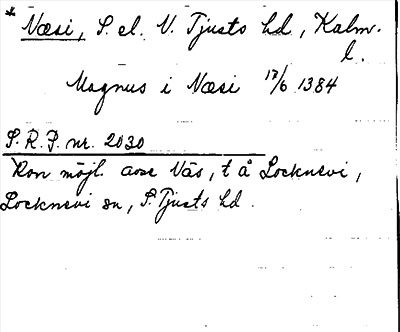 * Næsi, S. el. N. Tjusts hd, Kalm.
l.
Magnus i Næsi 17/6 1384
S.R.P. nr. 2030
Kan möjl. avse Näs, t å Locknevi,
Locknevi sn, S. Tjusts hd.